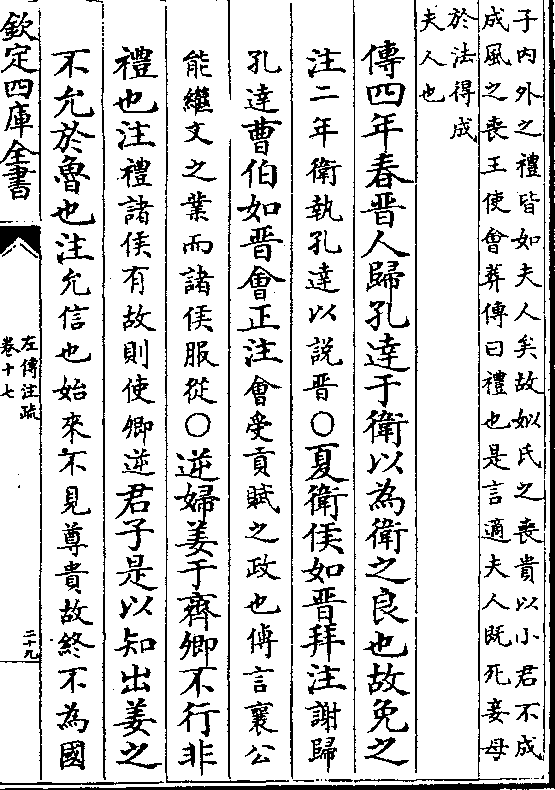 子内外之禮皆如夫人矣故姒氏之喪貴以小君不成
成風之喪王使㑹葬傳曰禮也是言適夫人既死妾母
於法得成
夫人也
傳四年春晋人歸孔達于衛以為衛之良也故免之
注二年衛執孔達以説晋○夏衛侯如晋拜注謝歸
孔達曹伯如晋㑹正注㑹受貢賦之政也傳言襄公
能繼文之業而諸侯服從○逆婦姜于齊卿不行非
禮也注禮諸侯有故則使卿逆君子是以知出姜之
不允於魯也注允信也始來不見尊貴故終不為國
欽定四庫全書
左傳注疏
卷十七
二十九